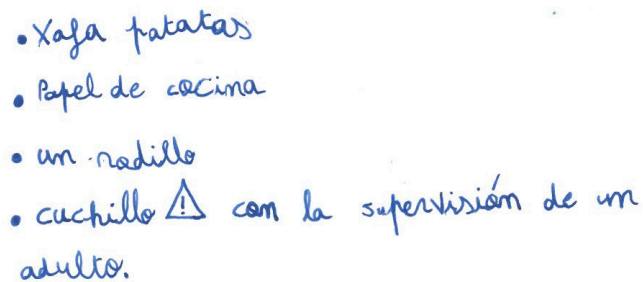 • Xafa patatas
• Papel de cocina
• un rodillo
• cuchillo ⚠ con la supervisión de un
adulto.